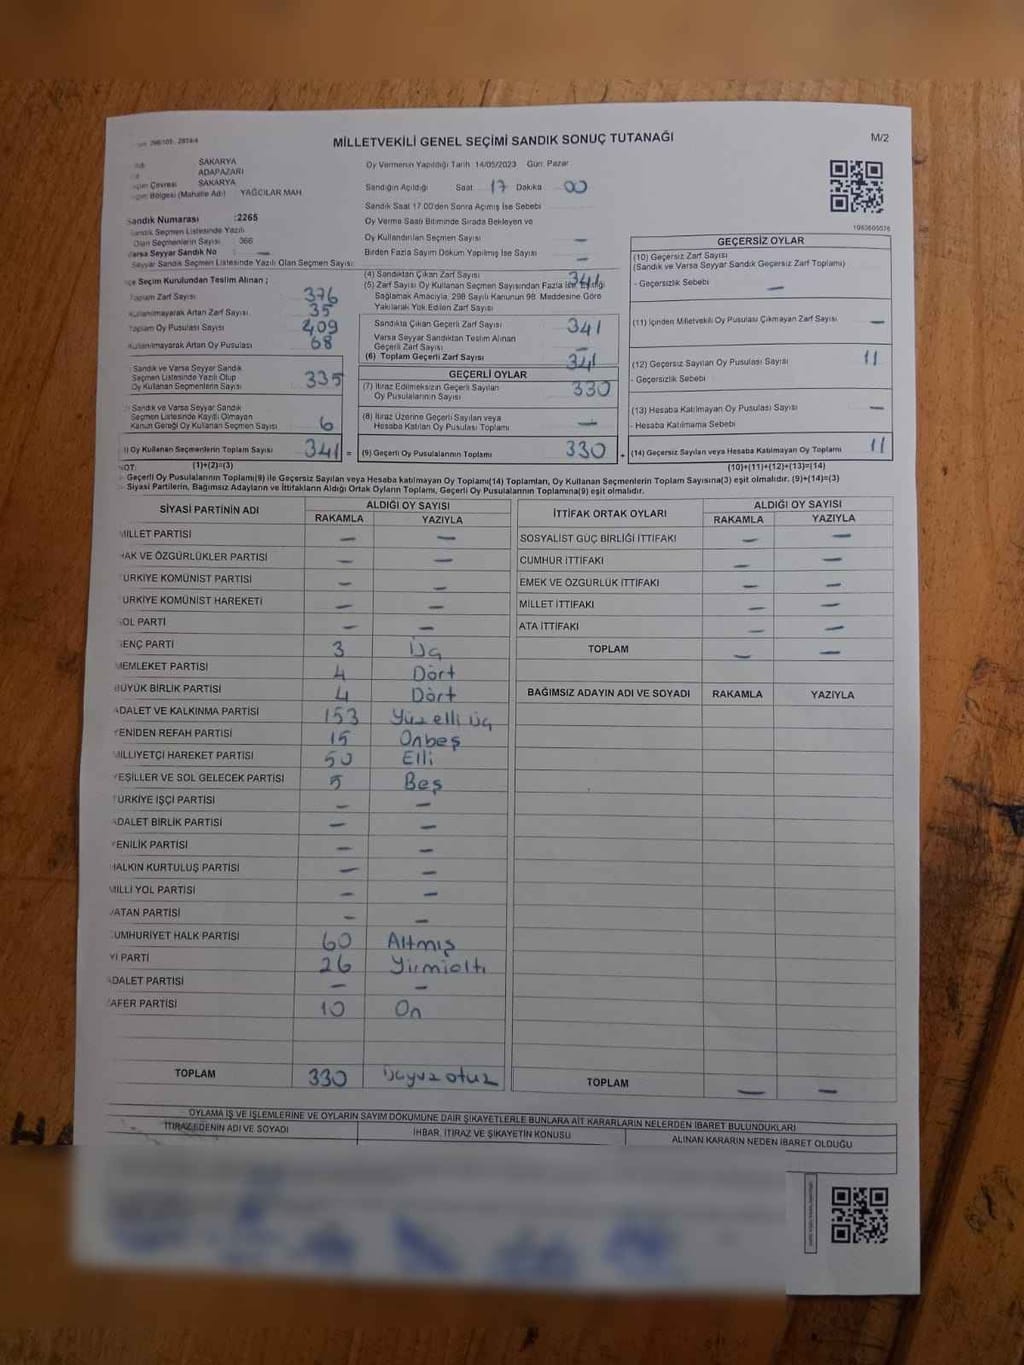 MİLLETVEKİLİ GENEL SEÇİMİ SANDIK SONUÇ TUTANAĞI
M/2
SAKARYA
ADAPAZARI
SAKARYA
YAĞCILAR MAH.
Oy Vermenin Yapıldığı Tarih 14/05/2023 Gün: Pazar
Sandığın Açıldığı Saat 17 Dakika 00
Sandık Saat 17.00'den Sonra Açılmış İse Sebebi
Sandık Numarası :2265
Olan Seçmenlerin Sayısı 366
Varsa Seyyar Sandık No —
Seyyar Sandık Seçmen Listesinde Yazılı Olan Seçmen Sayısı:
Oy Verme Saati Bitiminde Sırada Bekleyen ve
Oy Kullandırılan Seçmen Sayısı —
Birden Fazla Sayım Döküm Yapılmış İse Sayısı —
Seçim Kurulundan Teslim Alınan ;
Toplam Zarf Sayısı 376
Kullanılmayarak Artan Zarf Sayısı 35
Toplam Oy Pusulası Sayısı 409
Kullanılmayarak Artan Oy Pusulası 68
Sandık ve Varsa Seyyar Sandık
Seçmen Listesinde Yazılı Olup
Oy Kullanan Seçmenlerin Sayısı 335
Sandık ve Varsa Seyyar Sandık
Seçmen Listesinde Kayıtlı Olmayan
Kanun Gereği Oy Kullanan Seçmen Sayısı 6
Oy Kullanan Seçmenlerin Toplam Sayısı 341 =
(1)+(2)=(3)
(4) Sandıktan Çıkan Zarf Sayısı 341
(5) Zarf Sayısı Oy Kullanan Seçmen Sayısından Fazla İse, Eşitliği
Sağlamak Amacıyla, 298 Sayılı Kanunun 98. Maddesine Göre
Yakılarak Yok Edilen Zarf Sayısı
Sandıkta Çıkan Geçerli Zarf Sayısı 341
Varsa Seyyar Sandıktan Teslim Alınan
Geçerli Zarf Sayısı —
(6) Toplam Geçerli Zarf Sayısı 341
GEÇERLİ OYLAR
(7) İtiraz Edilmeksizin Geçerli Sayılan
Oy Pusulalarının Sayısı 330
(8) İtiraz Üzerine Geçerli Sayılan veya
Hesaba Katılan Oy Pusulası Toplamı —
(9) Geçerli Oy Pusulalarının Toplamı 330 +
GEÇERSİZ OYLAR
(10) Geçersiz Zarf Sayısı
(Sandık ve Varsa Seyyar Sandık Geçersiz Zarf Toplamı)
- Geçersizlik Sebebi —
(11) İçinden Milletvekili Oy Pusulası Çıkmayan Zarf Sayısı —
(12) Geçersiz Sayılan Oy Pusulası Sayısı 11
- Geçersizlik Sebebi
(13) Hesaba Katılmayan Oy Pusulası Sayısı —
- Hesaba Katılmama Sebebi
(14) Geçersiz Sayılan veya Hesaba Katılmayan Oy Toplamı 11
(10)+(11)+(12)+(13)=(14)
NOT:
- Geçerli Oy Pusulalarının Toplamı(9) ile Geçersiz Sayılan veya Hesaba katılmayan Oy Toplamı(14) Toplamları, Oy Kullanan Seçmenlerin Toplam Sayısına(3) eşit olmalıdır. (9)+(14)=(3)
- Siyasi Partilerin, Bağımsız Adayların ve İttifakların Aldığı Ortak Oyların Toplamı, Geçerli Oy Pusulalarının Toplamına(9) eşit olmalıdır.
SİYASİ PARTİNİN ADI ALDIĞI OY SAYISI
RAKAMLA YAZIYLA
MİLLET PARTİSİ — —
HAK VE ÖZGÜRLÜKLER PARTİSİ — —
TÜRKİYE KOMÜNİST PARTİSİ — —
TÜRKİYE KOMÜNİST HAREKETİ — —
SOL PARTİ — —
GENÇ PARTİ 3 Üç
MEMLEKET PARTİSİ 4 Dört
BÜYÜK BİRLİK PARTİSİ 4 Dört
ADALET VE KALKINMA PARTİSİ 153 Yüz elli üç
YENİDEN REFAH PARTİSİ 15 Onbeş
MİLLİYETÇİ HAREKET PARTİSİ 50 Elli
YEŞİLLER VE SOL GELECEK PARTİSİ 5 Beş
TÜRKİYE İŞÇİ PARTİSİ — —
ADALET BİRLİK PARTİSİ — —
YENİLİK PARTİSİ — —
HALKIN KURTULUŞ PARTİSİ — —
MİLLİ YOL PARTİSİ — —
VATAN PARTİSİ — —
CUMHURİYET HALK PARTİSİ 60 Altmış
İYİ PARTİ 26 Yirmialtı
ADALET PARTİSİ — —
ZAFER PARTİSİ 10 On
TOPLAM 330 Üçyüz otuz
İTTİFAK ORTAK OYLARI ALDIĞI OY SAYISI
RAKAMLA YAZIYLA
SOSYALİST GÜÇ BİRLİĞİ İTTİFAKI — —
CUMHUR İTTİFAKI — —
EMEK VE ÖZGÜRLÜK İTTİFAKI — —
MİLLET İTTİFAKI — —
ATA İTTİFAKI — —
TOPLAM — —
BAĞIMSIZ ADAYIN ADI VE SOYADI RAKAMLA YAZIYLA
TOPLAM — —
OYLAMA İŞ VE İŞLEMLERİNE VE OYLARIN SAYIM DÖKÜMÜNE DAİR ŞİKAYETLERLE BUNLARA AİT KARARLARIN NELERDEN İBARET BULUNDUKLARI
İTİRAZ EDENİN ADI VE SOYADI İHBAR, İTİRAZ VE ŞİKAYETİN KONUSU ALINAN KARARIN NEDEN İBARET OLDUĞU